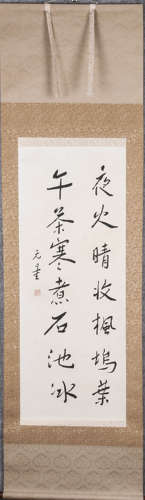 夜火晴收楓塢葉
午茶寒煮石池冰
元量